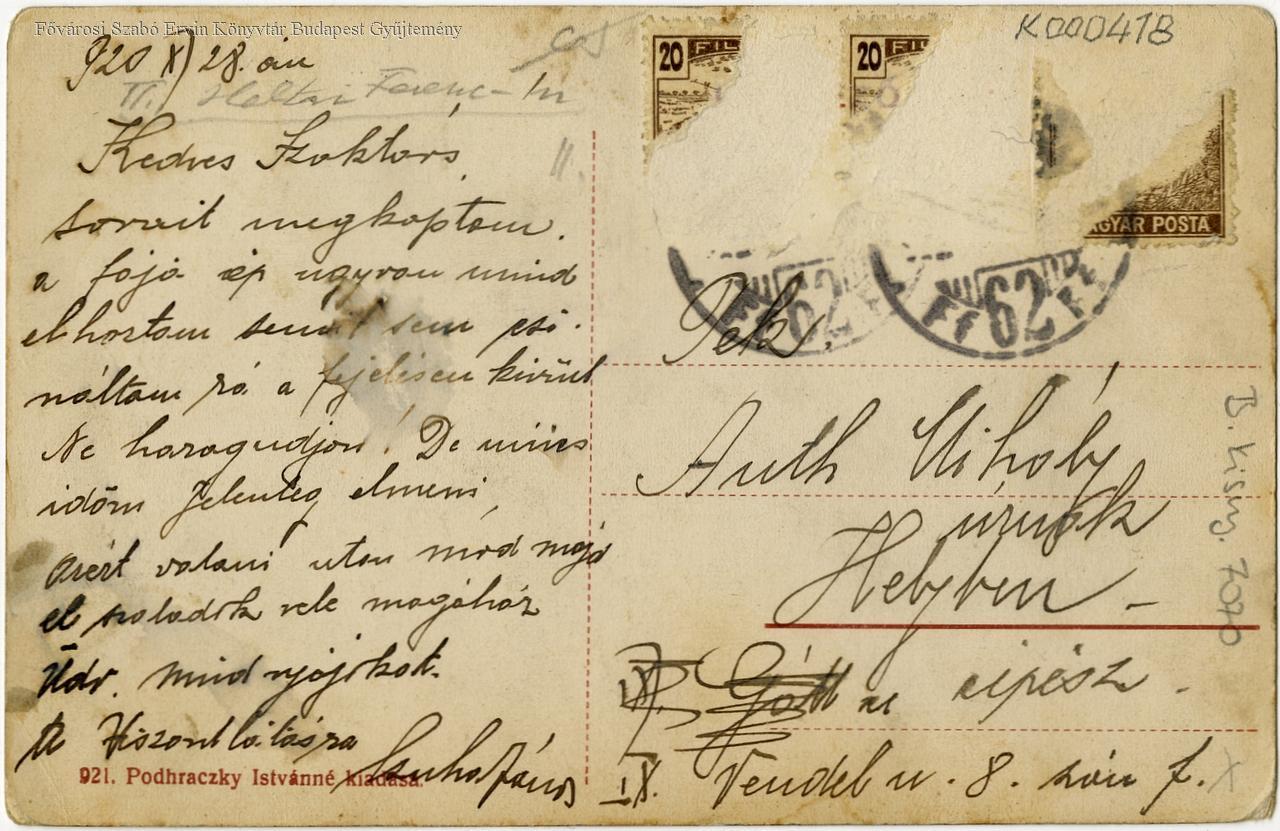 Fővárosi Szabó Ervin Könyvtár Budapest Gyűjtemény
920 X) 28. án
II. Heltai Ferenc-
Kedves Szaktárs
sorait megkaptam.
a fája ép ugyvan mind
elhoztam semit sem csi-
náltam rá a fejelésen kivűl
Ne haragudjon! De nincs
időm jelenleg elmeni
Azért valami uton mód majd
el szaladok vele magához
Üdv. mindnyájokat.
a Viszontlátásra
Szuha János
921. Podhraczky Istvánné kiadása.
K000418
20 FIL
20 FIL
GYAR POSTA
62
62
Tek.
Auth Mihály
úrnak
Helyben -
IX. Góll u cipész.
IX. Vendel u. 8. szám f.
B. kisny. 7070
II.
X